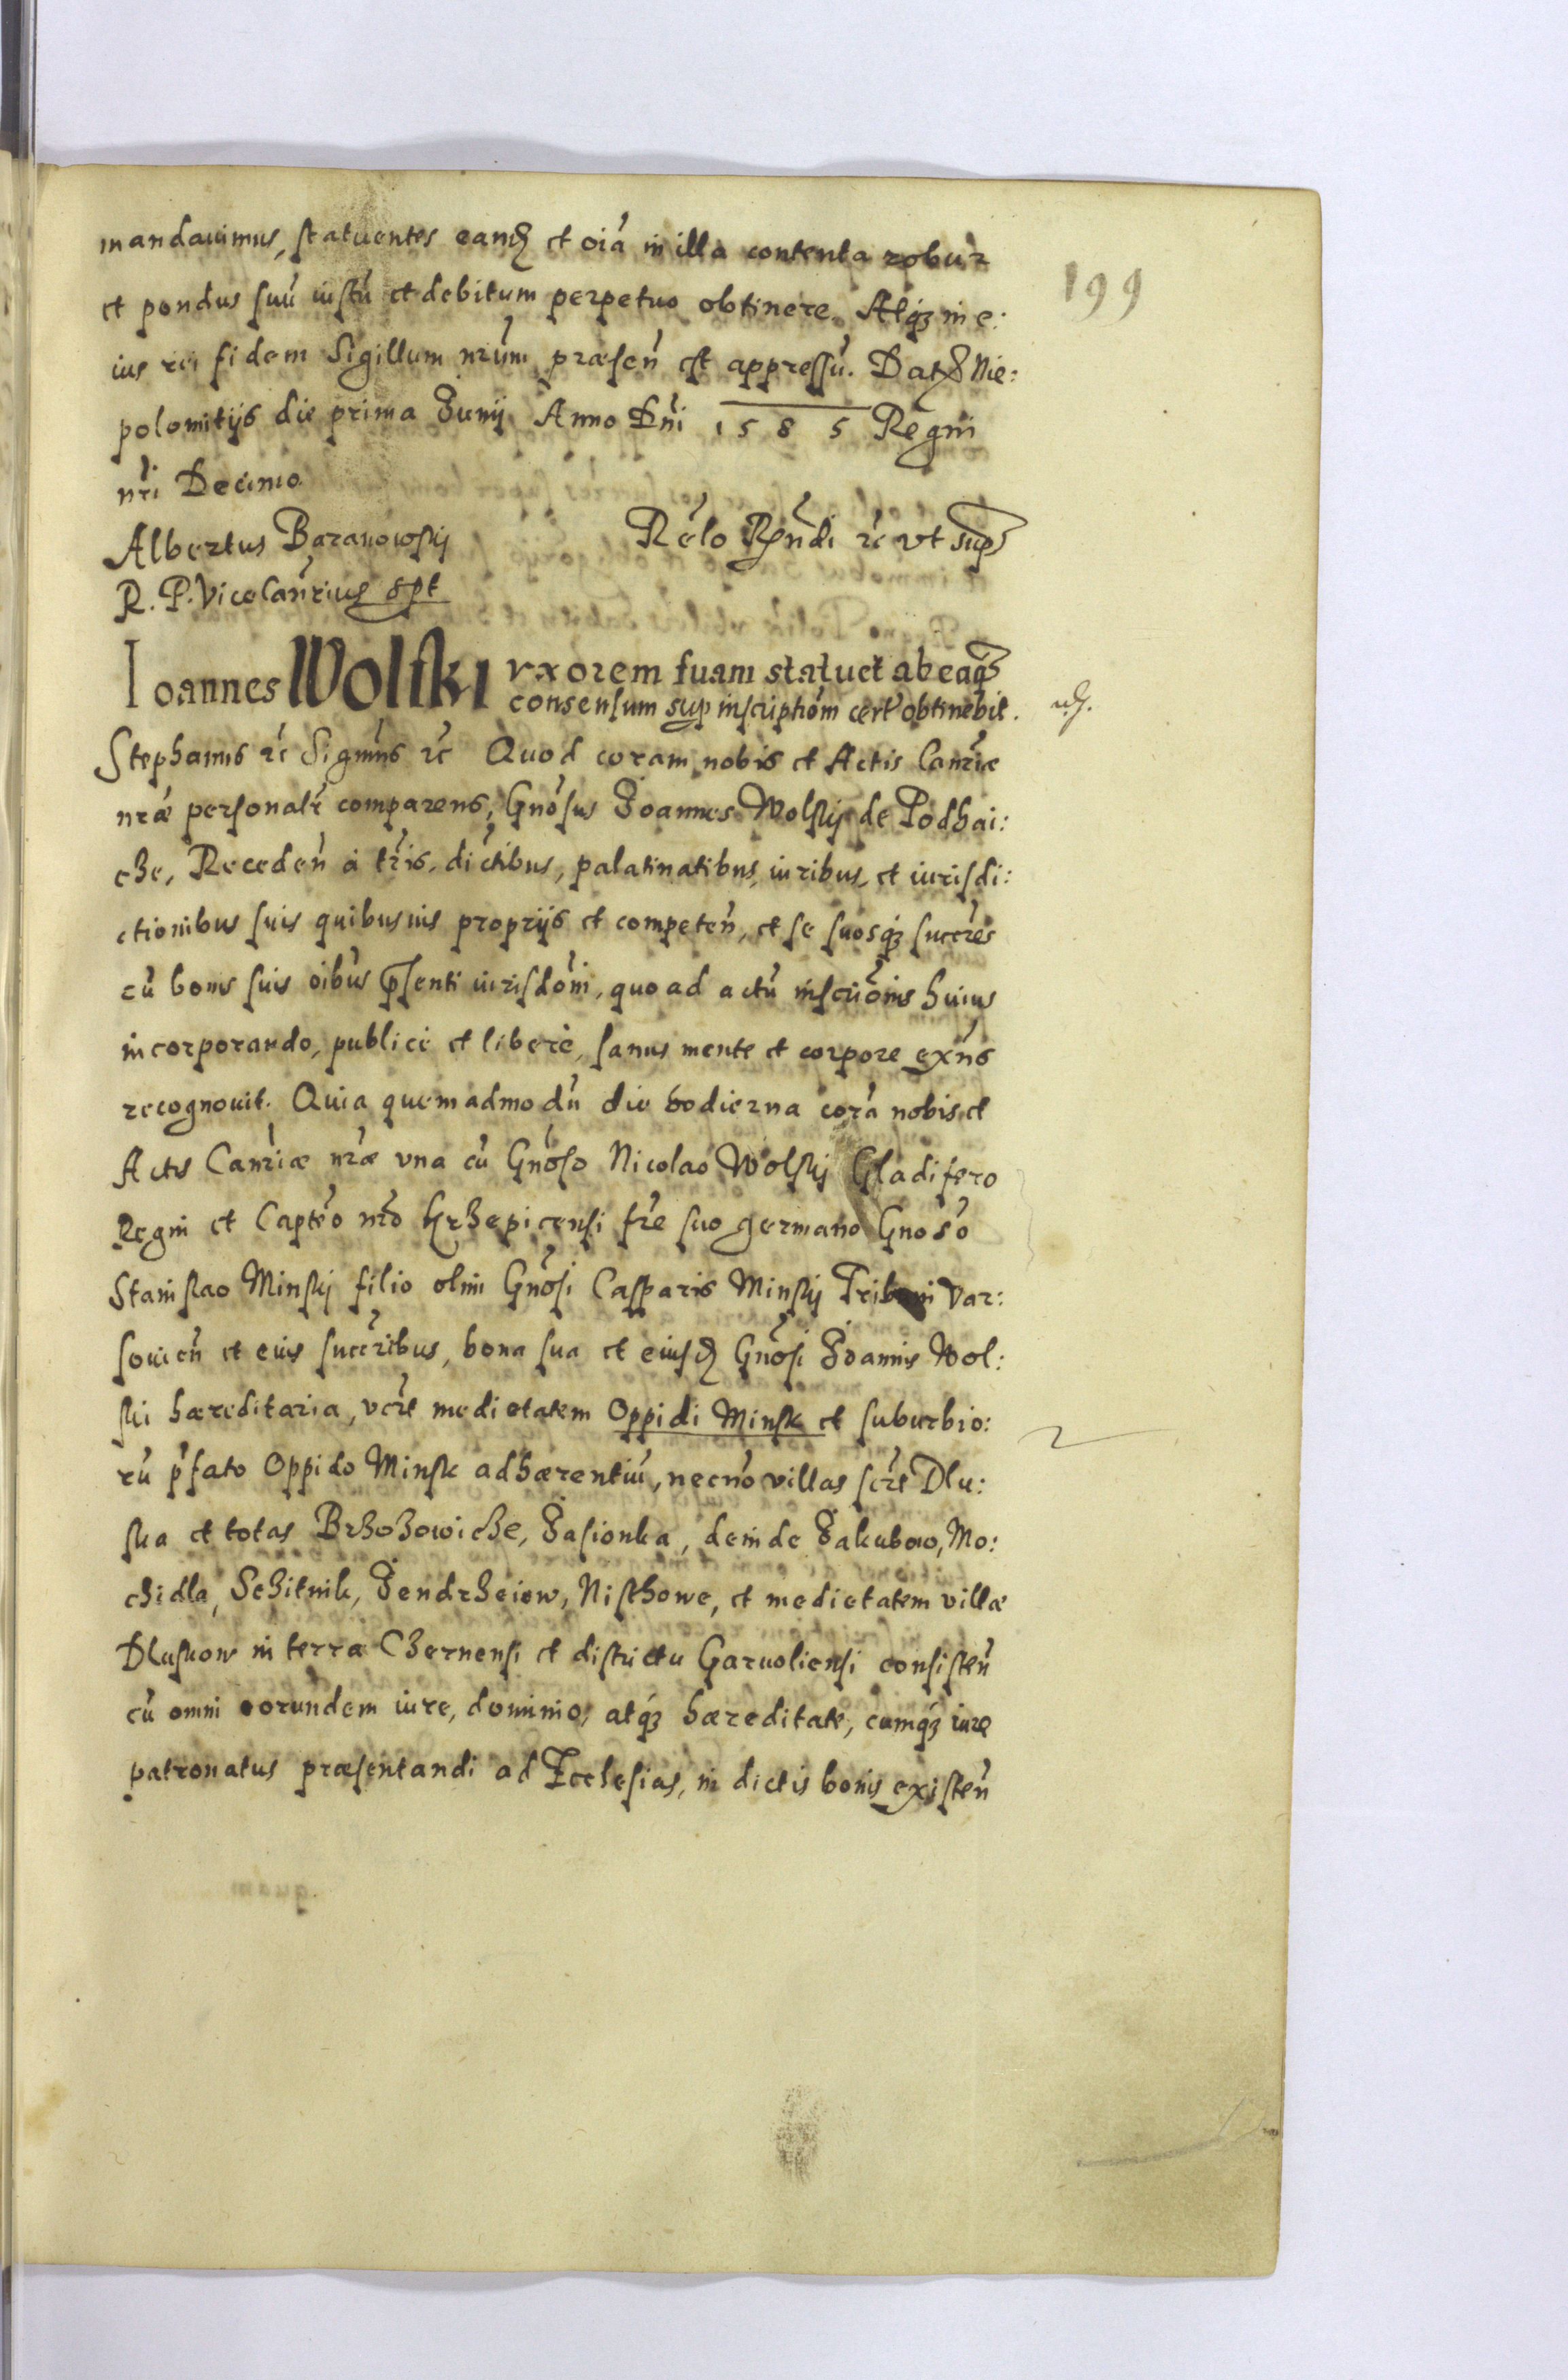 mandauimus, statuentes eand et oia in illa contenta robur
et pondus suu iustu et debitum perpetuo obtinere. Atq3 in e:
ius rei fidem Sigillum nrum, præsen est appressu. Dat Nie:
polomitijs die prima Junij Anno Dni 1585 Regni
nri Decimo
Albertus Baranowskj
Relo Rndi rc vt sup
R. P. Vicecanrius spt
199
Ioannes Wolski vxorem suam statuet ab eaq3
consensum sup inscriptiom cert obtinebit.
Stephanus rc Signims rc Quod coram nobis et Actis Canriæ
nræ personalr comparens, Gnosus Joannes Wolskj de Podhai:
cze, Receden à tris, dictibus, palatinatibus, iuribus, et iurisdi:
ctionibus suis quibusuis proprijs et competen, et se suosq3 succres
cu bonis suis oibus psenti iurisdoni, quo ad actu inscrionis huius
incorporando, publicè et liberè, sanus mente et corpore exns
recognouit. Quia quemadmodu die hodierna cora nobis et
Actis Canriæ nræ vna cu Gnoso Nicolao Wolskj Gladifero
Regni et Capteo nro Krzepicensi fre suo germano Gnoso
Stanislao Minskj filio olim Gnosi Casparis Minskj Tribuni Var:
souien et eius succribus, bona sua et eiusd Gnosi Joannis Wol:
ski hæreditaria, vcrt medietatem Oppidi Minsk et suburbio:
ru pfato Oppido Minsk adhærentiu, necno villas scrt Dlu:
ska et totas Brzozowicze, Jasionka, deinde Jakubow, Mo:
chidla, Schitnik, Jendrzeiow, Nisthowe, et medietatem villæ
Dluskow in terra Czernensi et districtu Garuoliensi consisten
cu omni eorundem iure, dominio, atq3 hæreditate, cumq3 iure
patronatus præsentandi ad Ecclesias, in dictis bonis existen